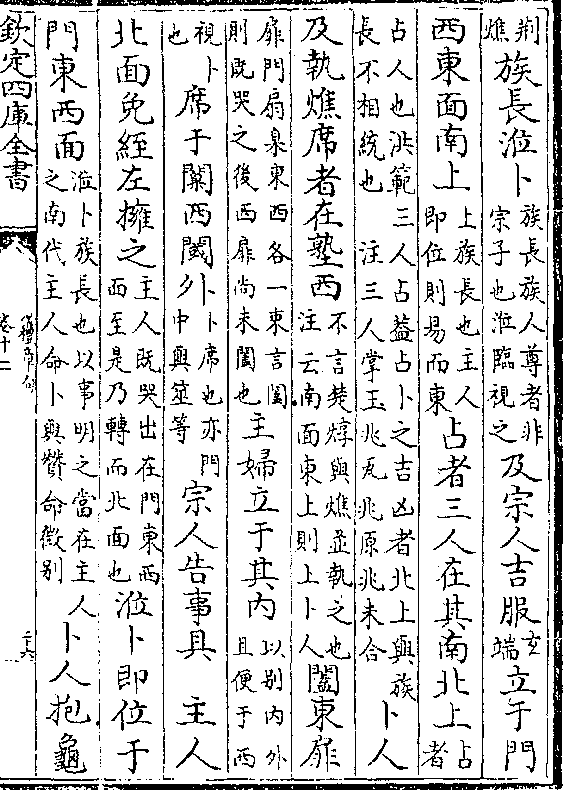 荆燋族長涖卜族長族人尊者非宗子也涖臨視之及宗人吉服玄端立于門
西東面南上上族長也主人即位則易而東占者三人在其南北上占者
占人也洪範三人占葢占卜之吉凶者北上與族長不相統也 注三人掌玉兆瓦兆原兆未合卜人
及執燋席者在塾西不言楚焞與燋並執之也注云南面東上則上卜人闔東扉
扉門扇臬東西各一東言闔則既哭之後西扉尚未闔也主婦立于其内以别内外且便于西
視卜也席于闑西閾外卜卜席也亦門中與筮等宗人告事具 主人
北面免絰左擁之主人既哭出在門東西面至是乃轉而北面也涖卜即位于
門東西面涖卜族長也以事明之當在主人之南代主人命卜與贊命微别卜人抱龜
欽定四庫全書
儀禮章句
卷十二
二十六